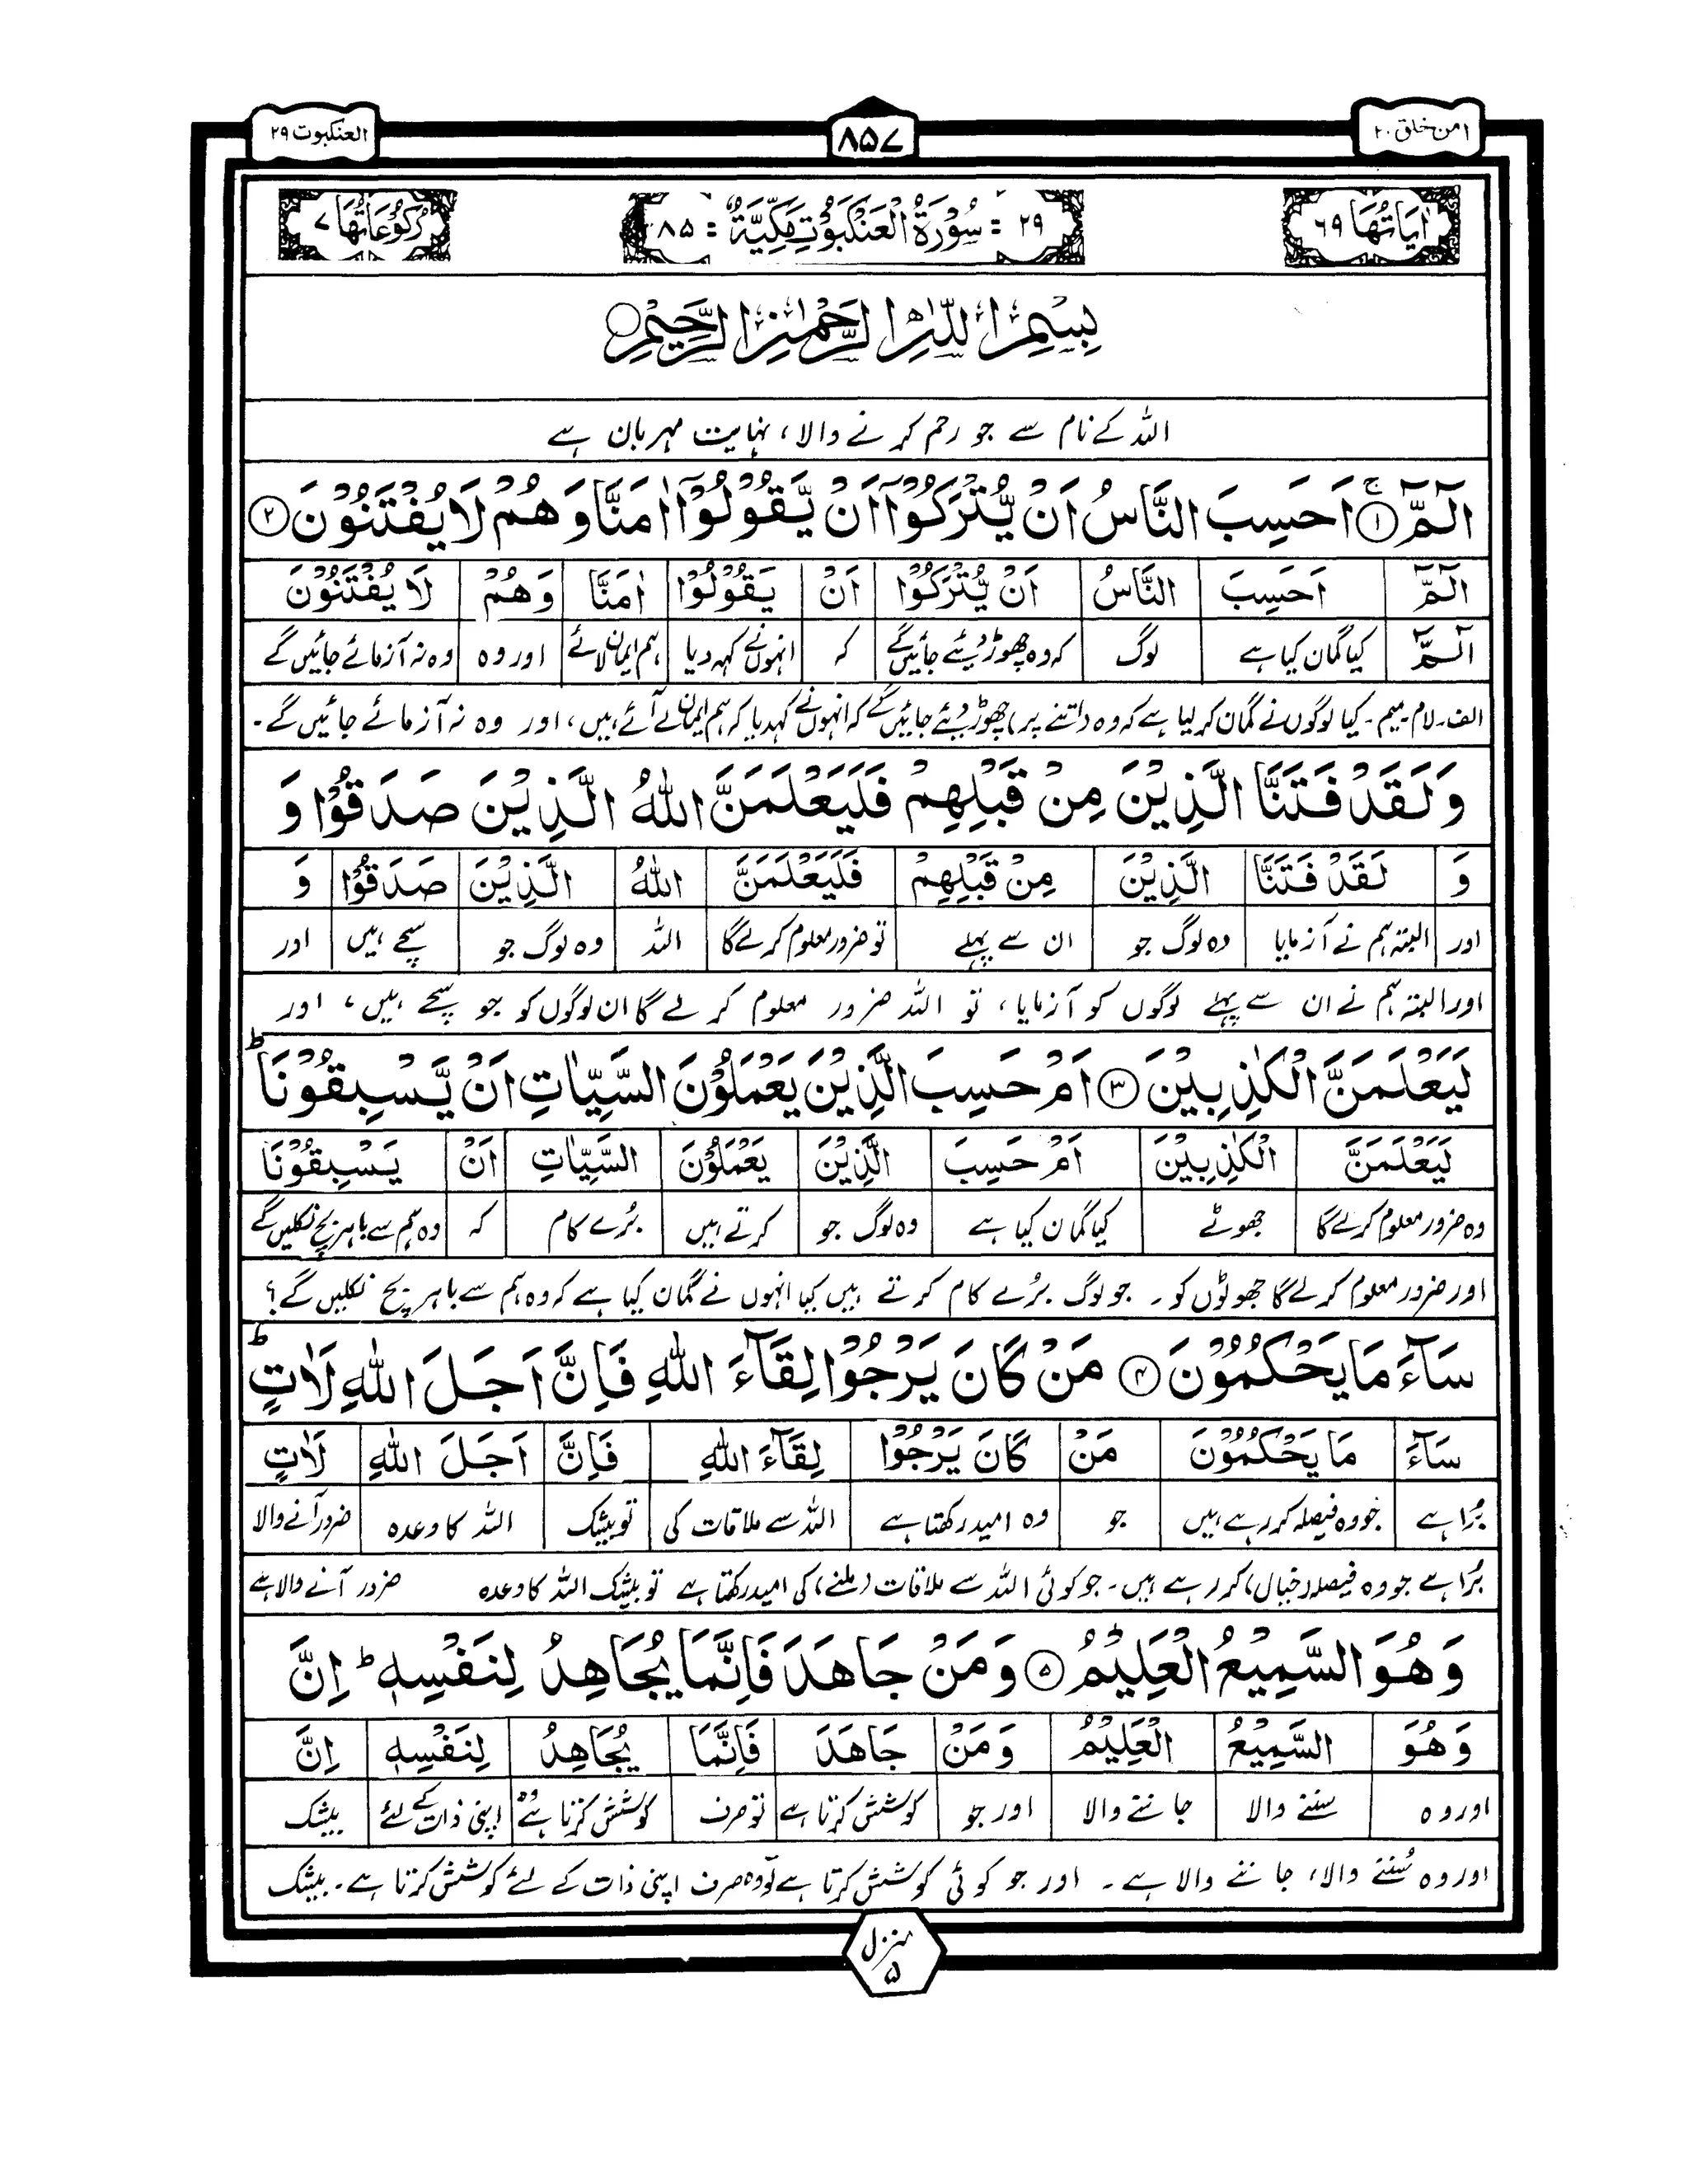 امن خلق ۲۰
۸۵۷
العنکبوت ۲۹
اٰيَاتُهَا ۶۹
۲۹ = سُوْرَةُ الْعَنْكَبُوْتِ مَكِّيَّةٌ = ۸۵
رُكُوْعَاتُهَا ۷
بِسْمِ اللّٰهِ الرَّحْمٰنِ الرَّحِيْمِ
اللہ کے نام سے جو رحم کرنے والا، نہایت مہربان ہے
الٓمّٓ ۚ ﴿۱﴾ اَحَسِبَ النَّاسُ اَنْ يُّتْرَكُوْٓا اَنْ يَّقُوْلُوْٓا اٰمَنَّا وَهُمْ لَا يُفْتَنُوْنَ ﴿۲﴾
الٓمّٓ اَحَسِبَ النَّاسُ اَنْ يُّتْرَكُوْا اَنْ يَقُوْلُوْا اٰمَنَّا وَهُمْ لَا يُفْتَنُوْنَ
الٓمّٓ کیا گمان کیا ہے لوگ کہ وہ چھوڑ دیئے جائیں گے کہ انہوں نے کہہ دیا ہم ایمان لائے اور وہ وہ نہ آزمائے جائیں گے
الف۔لام۔میم۔ کیا لوگوں نے گمان کر لیا ہے کہ وہ (اتنے پر) چھوڑ دیئے جائیں گے کہ انہوں نے کہہ دیا کہ ہم ایمان لے آئے ہیں، اور وہ نہ آزمائے جائیں گے۔
وَلَقَدْ فَتَنَّا الَّذِيْنَ مِنْ قَبْلِهِمْ فَلَيَعْلَمَنَّ اللّٰهُ الَّذِيْنَ صَدَقُوْا وَ
وَ لَقَدْ فَتَنَّا الَّذِيْنَ مِنْ قَبْلِهِمْ فَلَيَعْلَمَنَّ اللّٰهُ الَّذِيْنَ صَدَقُوْا وَ
اور البتہ ہم نے آزمایا وہ لوگ جو ان سے پہلے تو ضرور معلوم کرلے گا اللہ وہ لوگ جو سچے ہیں اور
اور البتہ ہم نے ان سے پہلے لوگوں کو آزمایا، تو اللہ ضرور معلوم کر لے گا ان لوگوں کو جو سچے ہیں، اور
لَيَعْلَمَنَّ الْكٰذِبِيْنَ ﴿۳﴾ اَمْ حَسِبَ الَّذِيْنَ يَعْمَلُوْنَ السَّيِّاٰتِ اَنْ يَّسْبِقُوْنَا ؕ
لَيَعْلَمَنَّ الْكٰذِبِيْنَ اَمْ حَسِبَ الَّذِيْنَ يَعْمَلُوْنَ السَّيِّاٰتِ اَنْ يَسْبِقُوْنَا
وہ ضرور معلوم کرلے گا جھوٹے کیا گمان کیا ہے وہ لوگ جو کرتے ہیں بُرے کام کہ وہ ہم سے باہر بچ نکلیں گے
اور ضرور معلوم کر لے گا جھوٹوں کو۔ جو لوگ بُرے کام کرتے ہیں کیا انہوں نے گمان کیا ہے کہ وہ ہم سے باہر بچ نکلیں گے؟
سَآءَ مَا يَحْكُمُوْنَ ﴿۴﴾ مَنْ كَانَ يَرْجُوْا لِقَآءَ اللّٰهِ فَاِنَّ اَجَلَ اللّٰهِ لَاٰتٍ ؕ
سَآءَ مَا يَحْكُمُوْنَ مَنْ كَانَ يَرْجُوْا لِقَآءَ اللّٰهِ فَاِنَّ اَجَلَ اللّٰهِ لَاٰتٍ
بُرا ہے جو وہ فیصلہ کر رہے ہیں جو وہ امید رکھتا ہے اللہ سے ملاقات کی تو بیشک اللہ کا وعدہ ضرور آنے والا
بُرا ہے جو وہ فیصلہ (خیال) کر رہے ہیں۔ جو کوئی اللہ سے ملاقات (ملنے) کی امید رکھتا ہے تو بیشک اللہ کا وعدہ ضرور آنے والا ہے
وَهُوَ السَّمِيْعُ الْعَلِيْمُ ﴿۵﴾ وَمَنْ جَاهَدَ فَاِنَّمَا يُجَاهِدُ لِنَفْسِهٖ ؕ اِنَّ
وَهُوَ السَّمِيْعُ الْعَلِيْمُ وَمَنْ جَاهَدَ فَاِنَّمَا يُجَاهِدُ لِنَفْسِهٖ اِنَّ
اور وہ سننے والا جاننے والا اور جو کوشش کرتا ہے تو صرف کوشش کرتا ہے وہ اپنی ذات کے لئے بیشک
اور وہ سُننے والا، جاننے والا ہے۔ اور جو کوئی کوشش کرتا ہے تو وہ صرف اپنی ذات کے لئے کوشش کرتا ہے۔ بیشک
منزل
۵